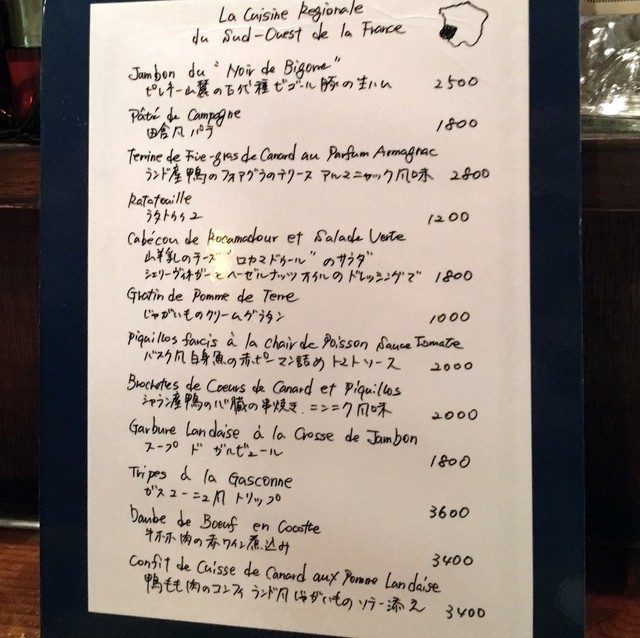 La Cuisine Régionale
du Sud-Ouest de la France
Jambon du "Noir de Bigorre"
ピレネー山麓の古代種ビゴール豚の生ハム 2500
Pâté de Campagne
田舎風パテ 1800
Terrine de Foie-gras de Canard au Parfum Armagnac
ランド産鴨のフォアグラのテリーヌ アルマニャック風味 2800
Ratatouille
ラタトゥイユ 1200
Cabécou de Rocamadour et Salade Verte
山羊乳のチーズ"ロカマドゥール"のサラダ
シェリーヴィネガーとヘーゼルナッツオイルのドレッシングで 1800
Gratin de Pomme de Terre
じゃがいものクリームグラタン 1000
Piquillos farcis à la chair de Poisson Sauce Tomate
バスク風白身魚の赤ピーマン詰め トマトソース 2000
Brochetes de Coeurs de Canard et Piquillos
シャラン産鴨の心臓の串焼き、ニンニク風味 2000
Garbure Landaise à la Crosse de Jambon
スープ ド ガルビュール 1800
Tripes à la Gasconne
ガスコーニュ風 トリップ 3600
Daube de Boeuf en Cocotte
牛ホホ肉の赤ワイン煮込み 3400
Confit de Cuisse de Canard aux Pomme Landaise
鴨もも肉のコンフィ ランド風じゃがいものソテー添え 3400